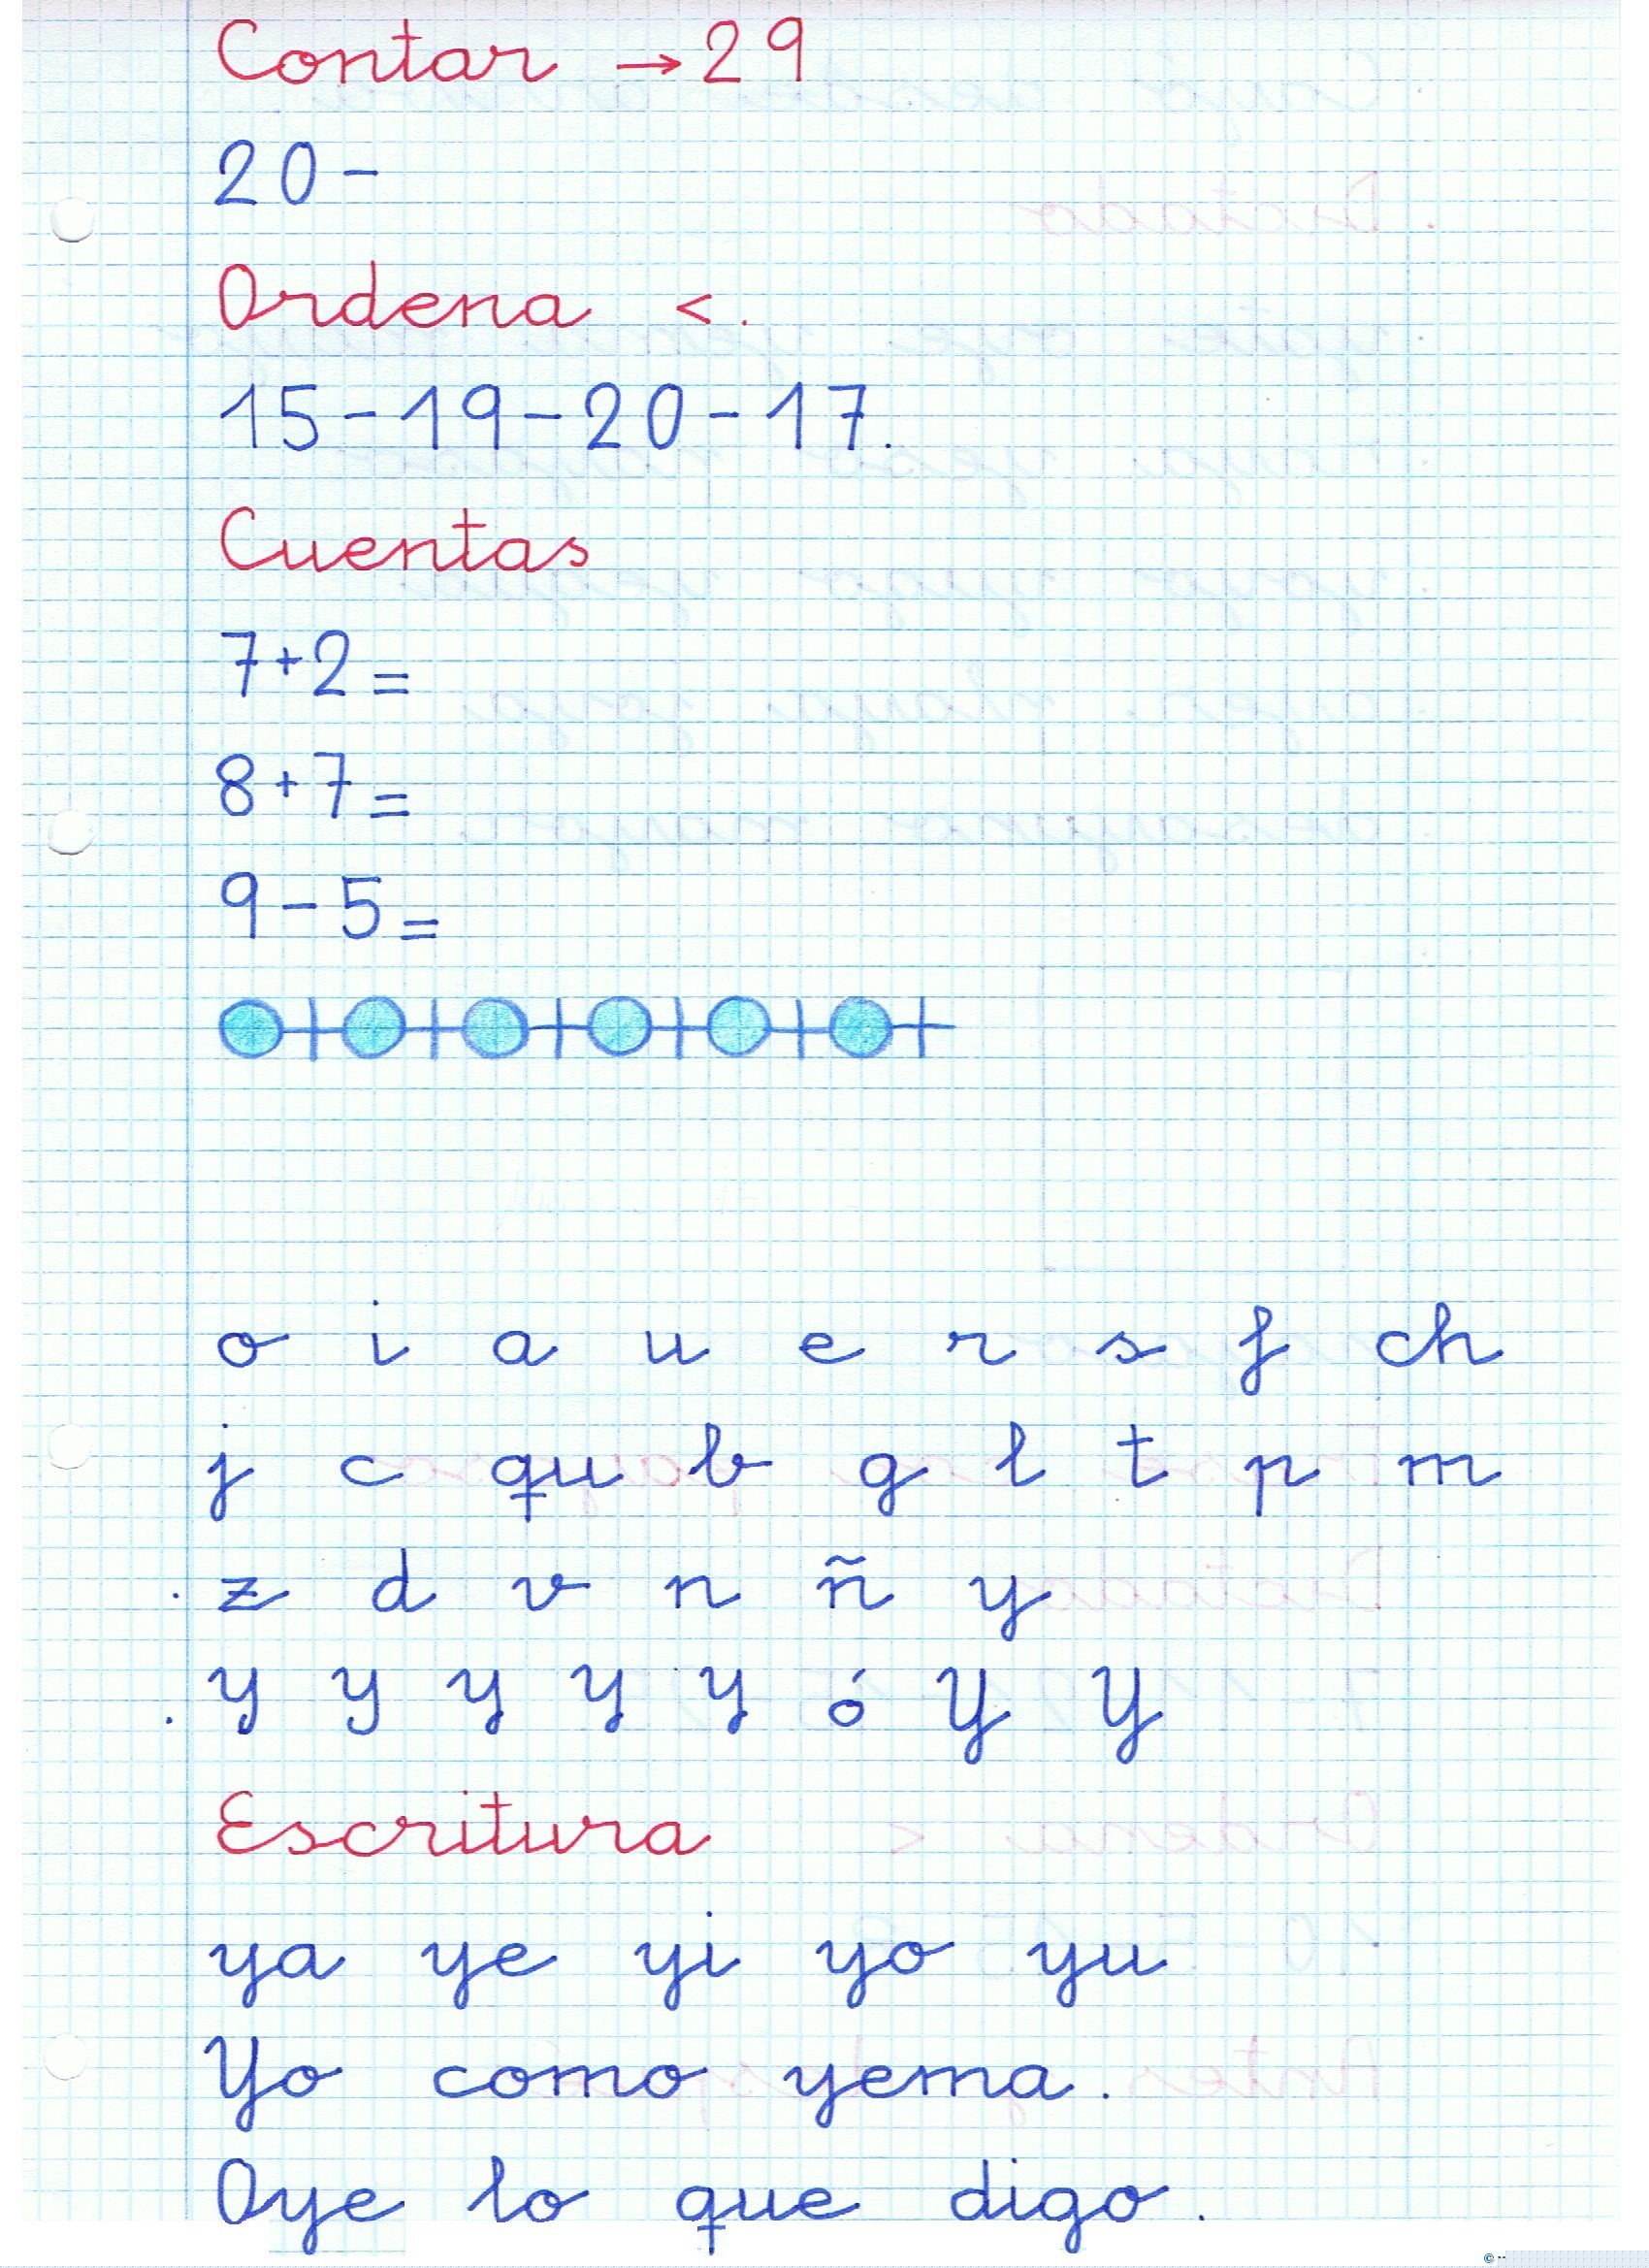 Contar → 29
20 -
Ordena < .
15 - 19 - 20 - 17.
Cuentas
7 + 2 =
8 + 7 =
9 - 5 =
o i a u e r s f ch
j c qu b g l t p m
z d v n ñ y
y y y y y ó Y Y
Escritura
ya ye yi yo yu
Yo como yema.
Oye lo que digo.